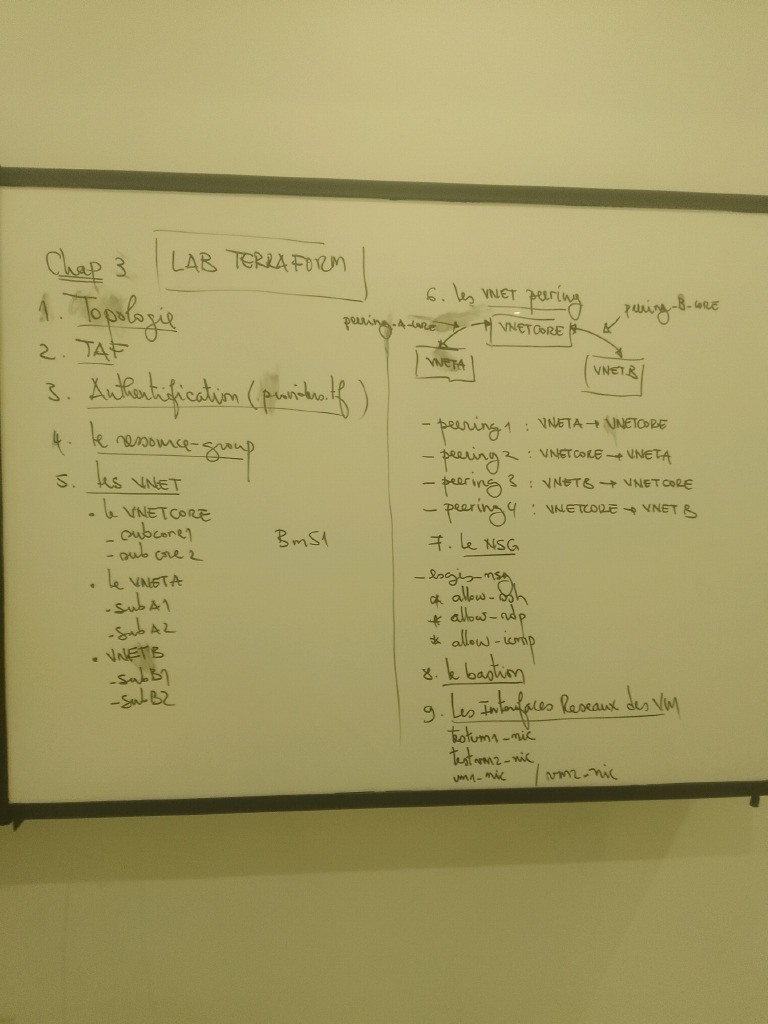 Chap 3 LAB TERRAFORM
1. Topologie
2. TAF
3. Authentification (providers.tf)
4. le ressource-group
5. les VNET
• le VNETCORE
- subcore1
- subcore2
BmS1
• le VNETA
- subA1
- subA2
• VNETB
- subB1
- subB2
6. les VNET peering
peering-A-core
VNETCORE
peering-B-CORE
VNETA
VNETB
- peering1 : VNETA → VNETCORE
- peering2 : VNETCORE → VNETA
- peering3 : VNETB → VNETCORE
- peering4 : VNETCORE → VNETB
7. le NSG
- esgis-nsg
* allow-ssh
* allow-rdp
* allow-icmp
8. le bastion
9. Les Interfaces Reseaux des VM
testvm1-nic
testvm2-nic
vm1-nic / vm2-nic